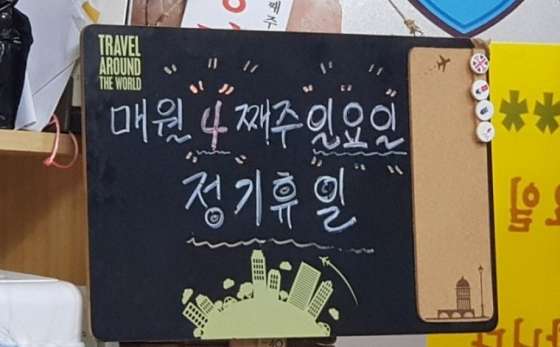 TRAVEL
AROUND
THE WORLD
매월 4째주 일요일
정기휴일
째주